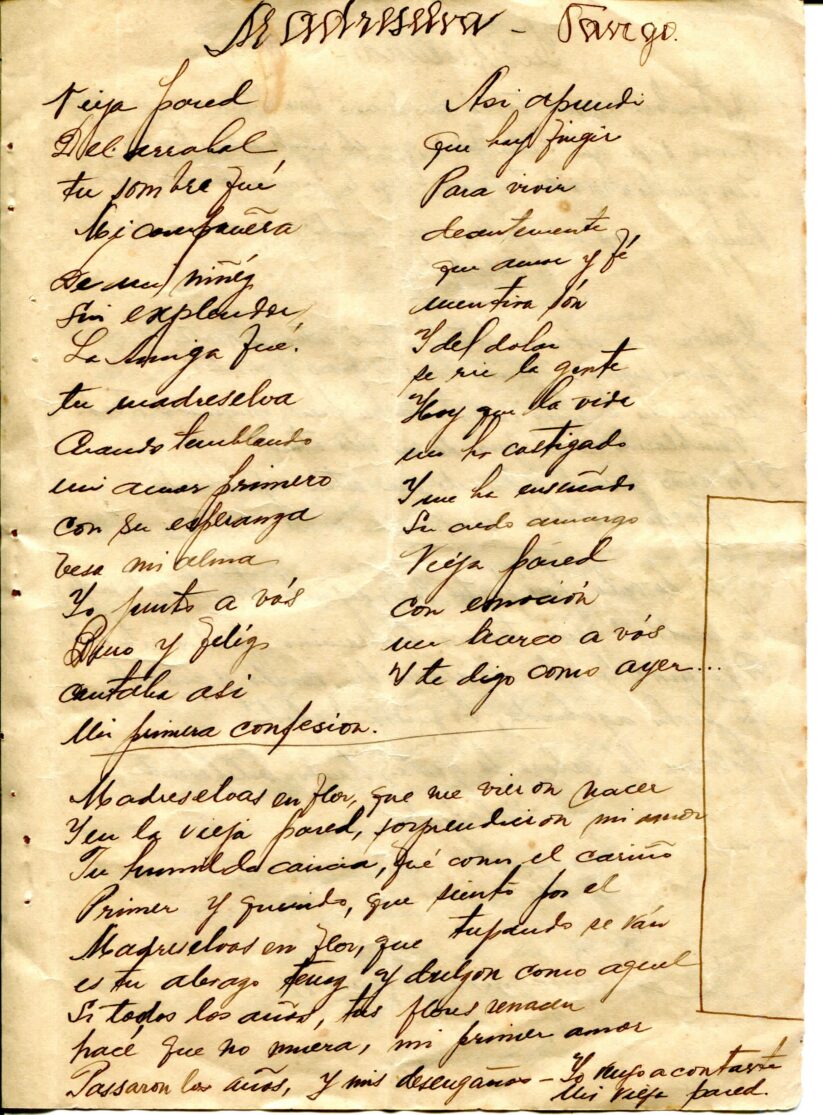 Madreselva - Tango.
Vieja pared
Del arrabal
tu sombra fué
Mi compañera
De mi niñéz
Sin explendor
La Amiga fué.
tu madreselva
Cuando temblando
mi amor primero
con su esperanza
besa mi alma
Yo junto a vós
Puro y felíz
cantaba asi
Mi primera confesion.
Asi aprendi
que hay fingir
Para vivir
decentemente
que amor y fé
mentira són
Y del dolor
se rie la gente
Hoy que la vida
me ha castigado
Y me ha enseñado
Su credo amargo
Vieja pared
con emoción
me hacerco a vós
Y te digo como ayer...
Madreselvas en flor, que me vieron nacer
Y en la vieja pared, sorprendieron mi amor
Tu humilde caricia, fué como el cariño
Primer y querido, que siento por el
Madreselvas en flor, que trepando se ván
es tu abrazo tenaz y dulzon como aquel
Si todos los años, tus flores renacen
hacé que no muera, mi primer amor
Passaron los años, y mis desengaños - Yo vengo a contarte
Mi vieja pared.